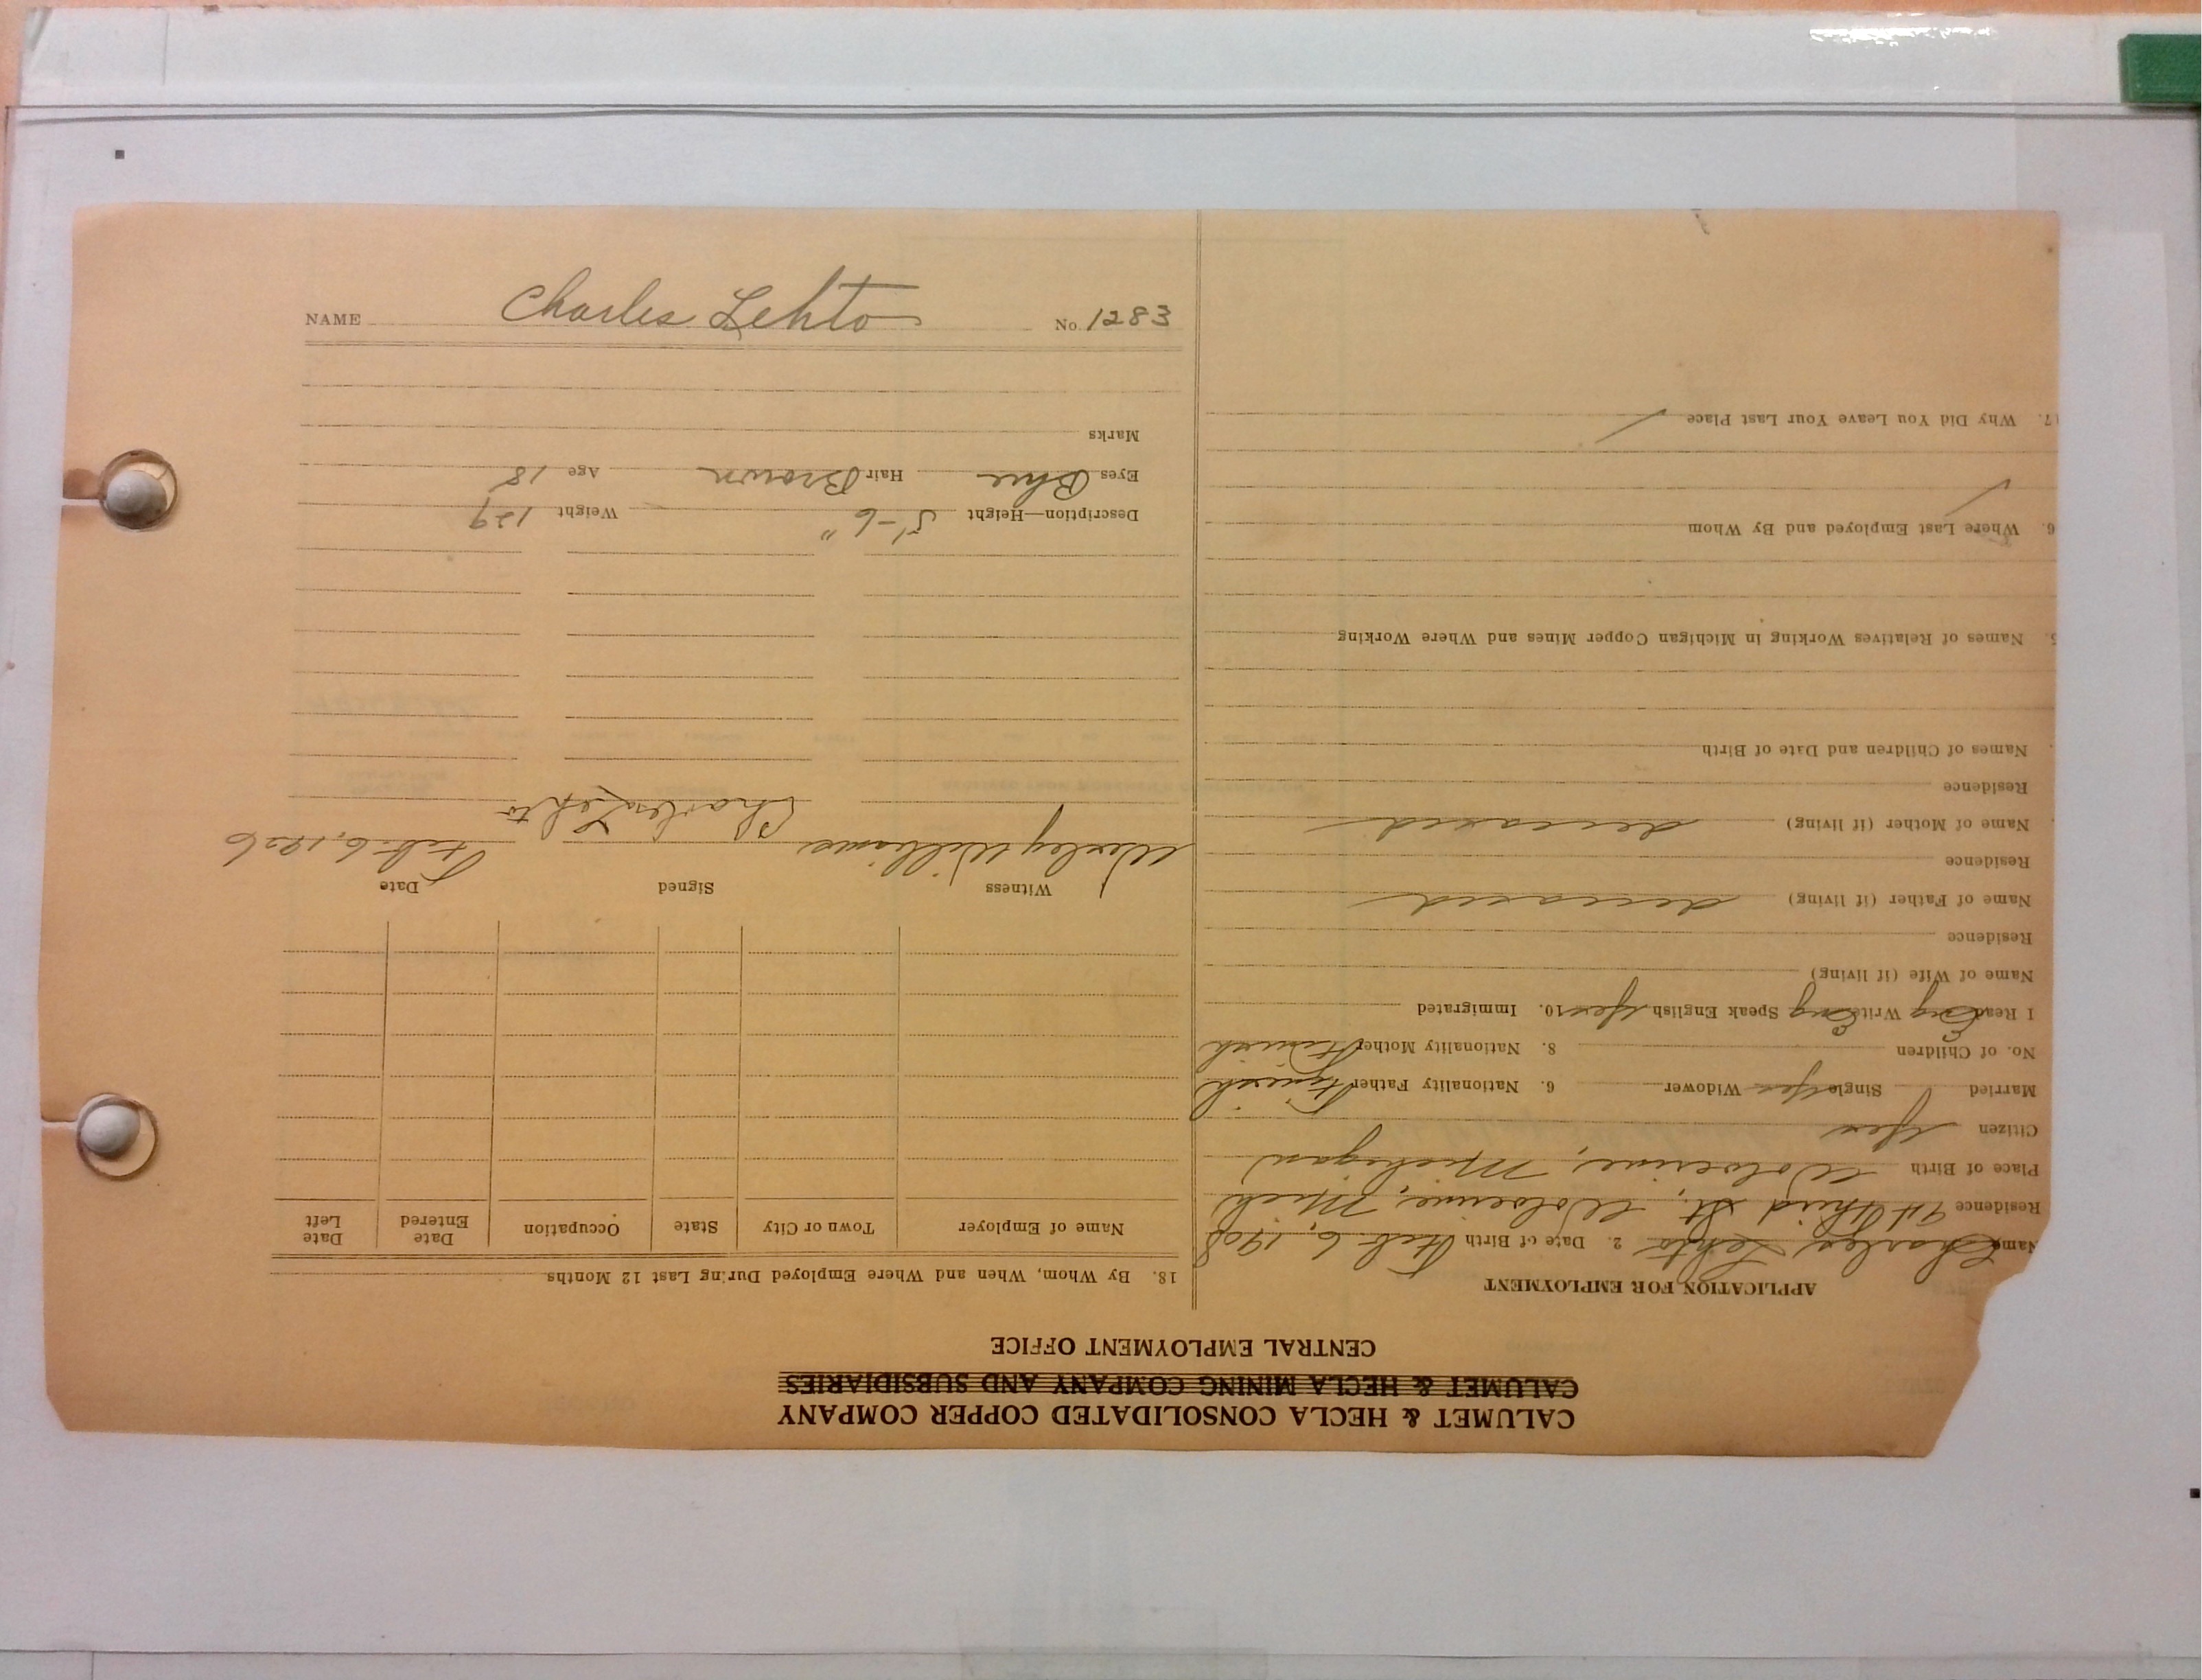 CALUMET & HECLA CONSOLIDATED COPPER COMPANY
CALUMET & HECLA MINING COMPANY AND SUBSIDIARIES
CENTRAL EMPLOYMENT OFFICE
APPLICATION FOR EMPLOYMENT
Name Charles Lehto 2. Date of Birth Feb. 6, 1908
Residence Third St., Wolverine, Mich
Place of Birth Wolverine, Michigan
Citizen Yes
Married Single Yes Widower 6. Nationality Father Finnish
No. of Children 8. Nationality Mother Finnish
I Read Eng Write Eng Speak English Yes 10. Immigrated
Name of Wife (if living)
Residence
Name of Father (if living) deceased
Residence
Name of Mother (if living) deceased
Residence
Names of Children and Date of Birth
5. Names of Relatives Working in Michigan Copper Mines and Where Working
6. Where Last Employed and By Whom
17. Why Did You Leave Your Last Place
18. By Whom, When and Where Employed During Last 12 Months
Name of Employer Town or City State Occupation Date Entered Date Left
Witness Signed Date
Wesley Williams Charles Lehto Feb. 6, 1926
Description—Height 5'-6" Weight 129
Eyes Blue Hair Brown Age 18
Marks
NAME Charles Lehto No. 1283